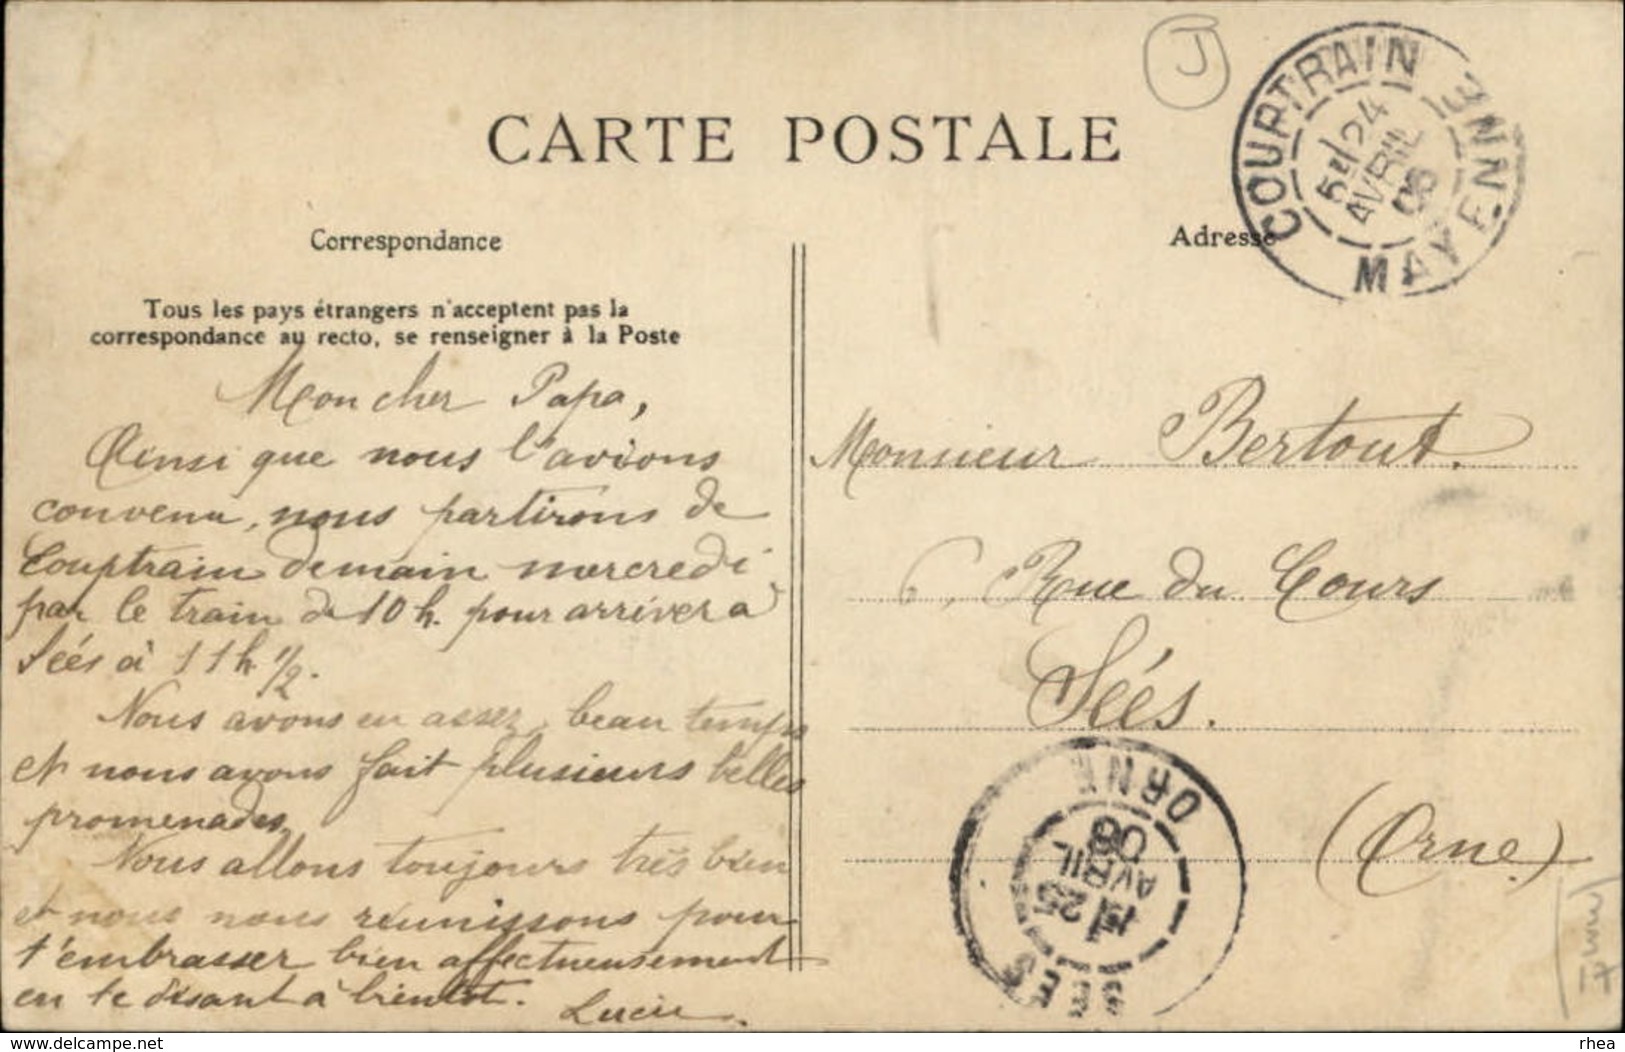 J
CARTE POSTALE
COUPTRAIN
24
AVRIL
MAYENNE
Correspondance
Adresse
Tous les pays étrangers n'acceptent pas la
correspondance au recto, se renseigner à la Poste
Mon cher Papa,
Ainsi que nous l'avions
convenu, nous partirons de
Couptrain demain mercredi
par le train de 10 h. pour arriver à
Sées à 11 h 1/2.
Nous avons eu assez beau temps
et nous avons fait plusieurs belles
promenades.
Nous allons toujours très bien
et nous nous réunissons pour
t'embrasser bien affectueusement
en te disant à bientôt.
Lucie.
Monsieur Bertout.
6, Rue du Cours
Sées.
(Orne)
ORNE
25
AVRIL
08
SÉES
delcampe.net
rhea